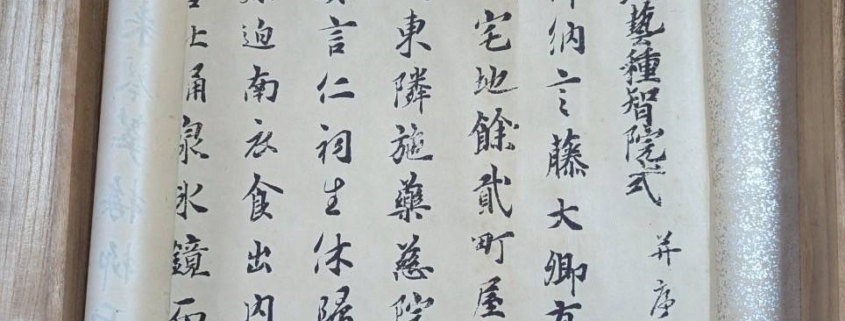 藝種智院式 并序
納言藤大卿有
宅地餘貳町屋
東隣施藥慈院
言仁祠生休歸
迫南衣食出内
涌泉氷鏡而